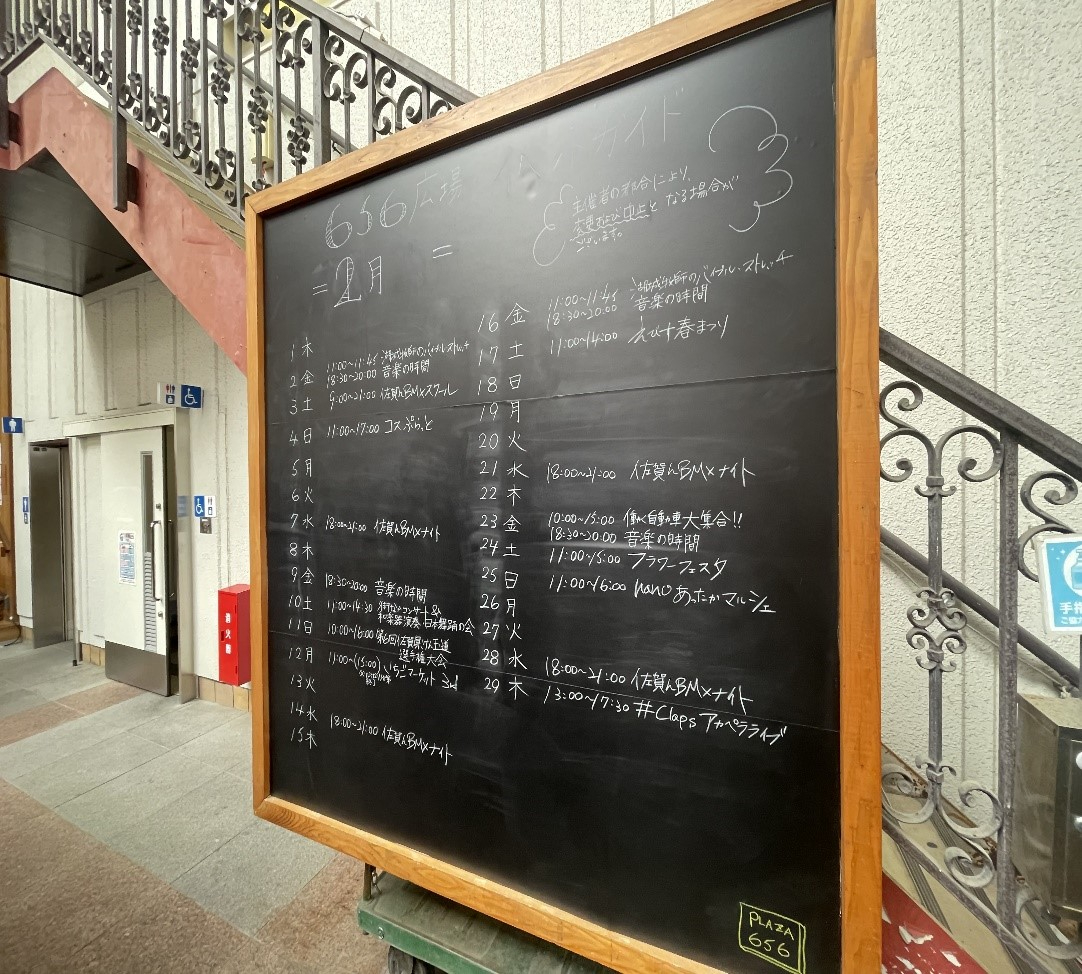 656広場 イベントガイド
=2月=
主催者の都合により、
変更および中止となる場合が
ございます。
1 木
2 金 11:00~11:45 のバイブル・ストレッチ
18:30~20:00 音楽の時間
3 土 9:00~21:00 佐賀んBM×スクール
4 日 11:00~17:00 コスぷらっと
5 月
6 火
7 水 18:00~21:00 佐賀んBM×ナイト
8 木
9 金 18:30~20:00 音楽の時間
10 土 11:00~14:30 街なかコンサート &
和楽器演奏・日本舞踊の会
11 日 10:00~16:00 第6回佐賀県けん玉道
選手権大会
12 月 11:00~(15:00) いちごマーケット 3rd
13 火
14 水 18:00~21:00 佐賀んBM×ナイト
15 木
16 金 11:00~11:45 のバイブル・ストレッチ
18:30~20:00 音楽の時間
17 土 11:00~14:00 えびす春まつり
18 日
19 月
20 火
21 水 18:00~21:00 佐賀んBM×ナイト
22 木
23 金 10:00~15:00 働く自動車大集合!!
18:30~20:00 音楽の時間
24 土 11:00~15:00 フラワーフェスタ
25 日 11:00~16:00 hanoあったかマルシェ
26 月
27 火
28 水 18:00~21:00 佐賀んBM×ナイト
29 木 13:00~17:30 #Claps アカペラライブ
PLAZA
656
消火器
手指
ご協